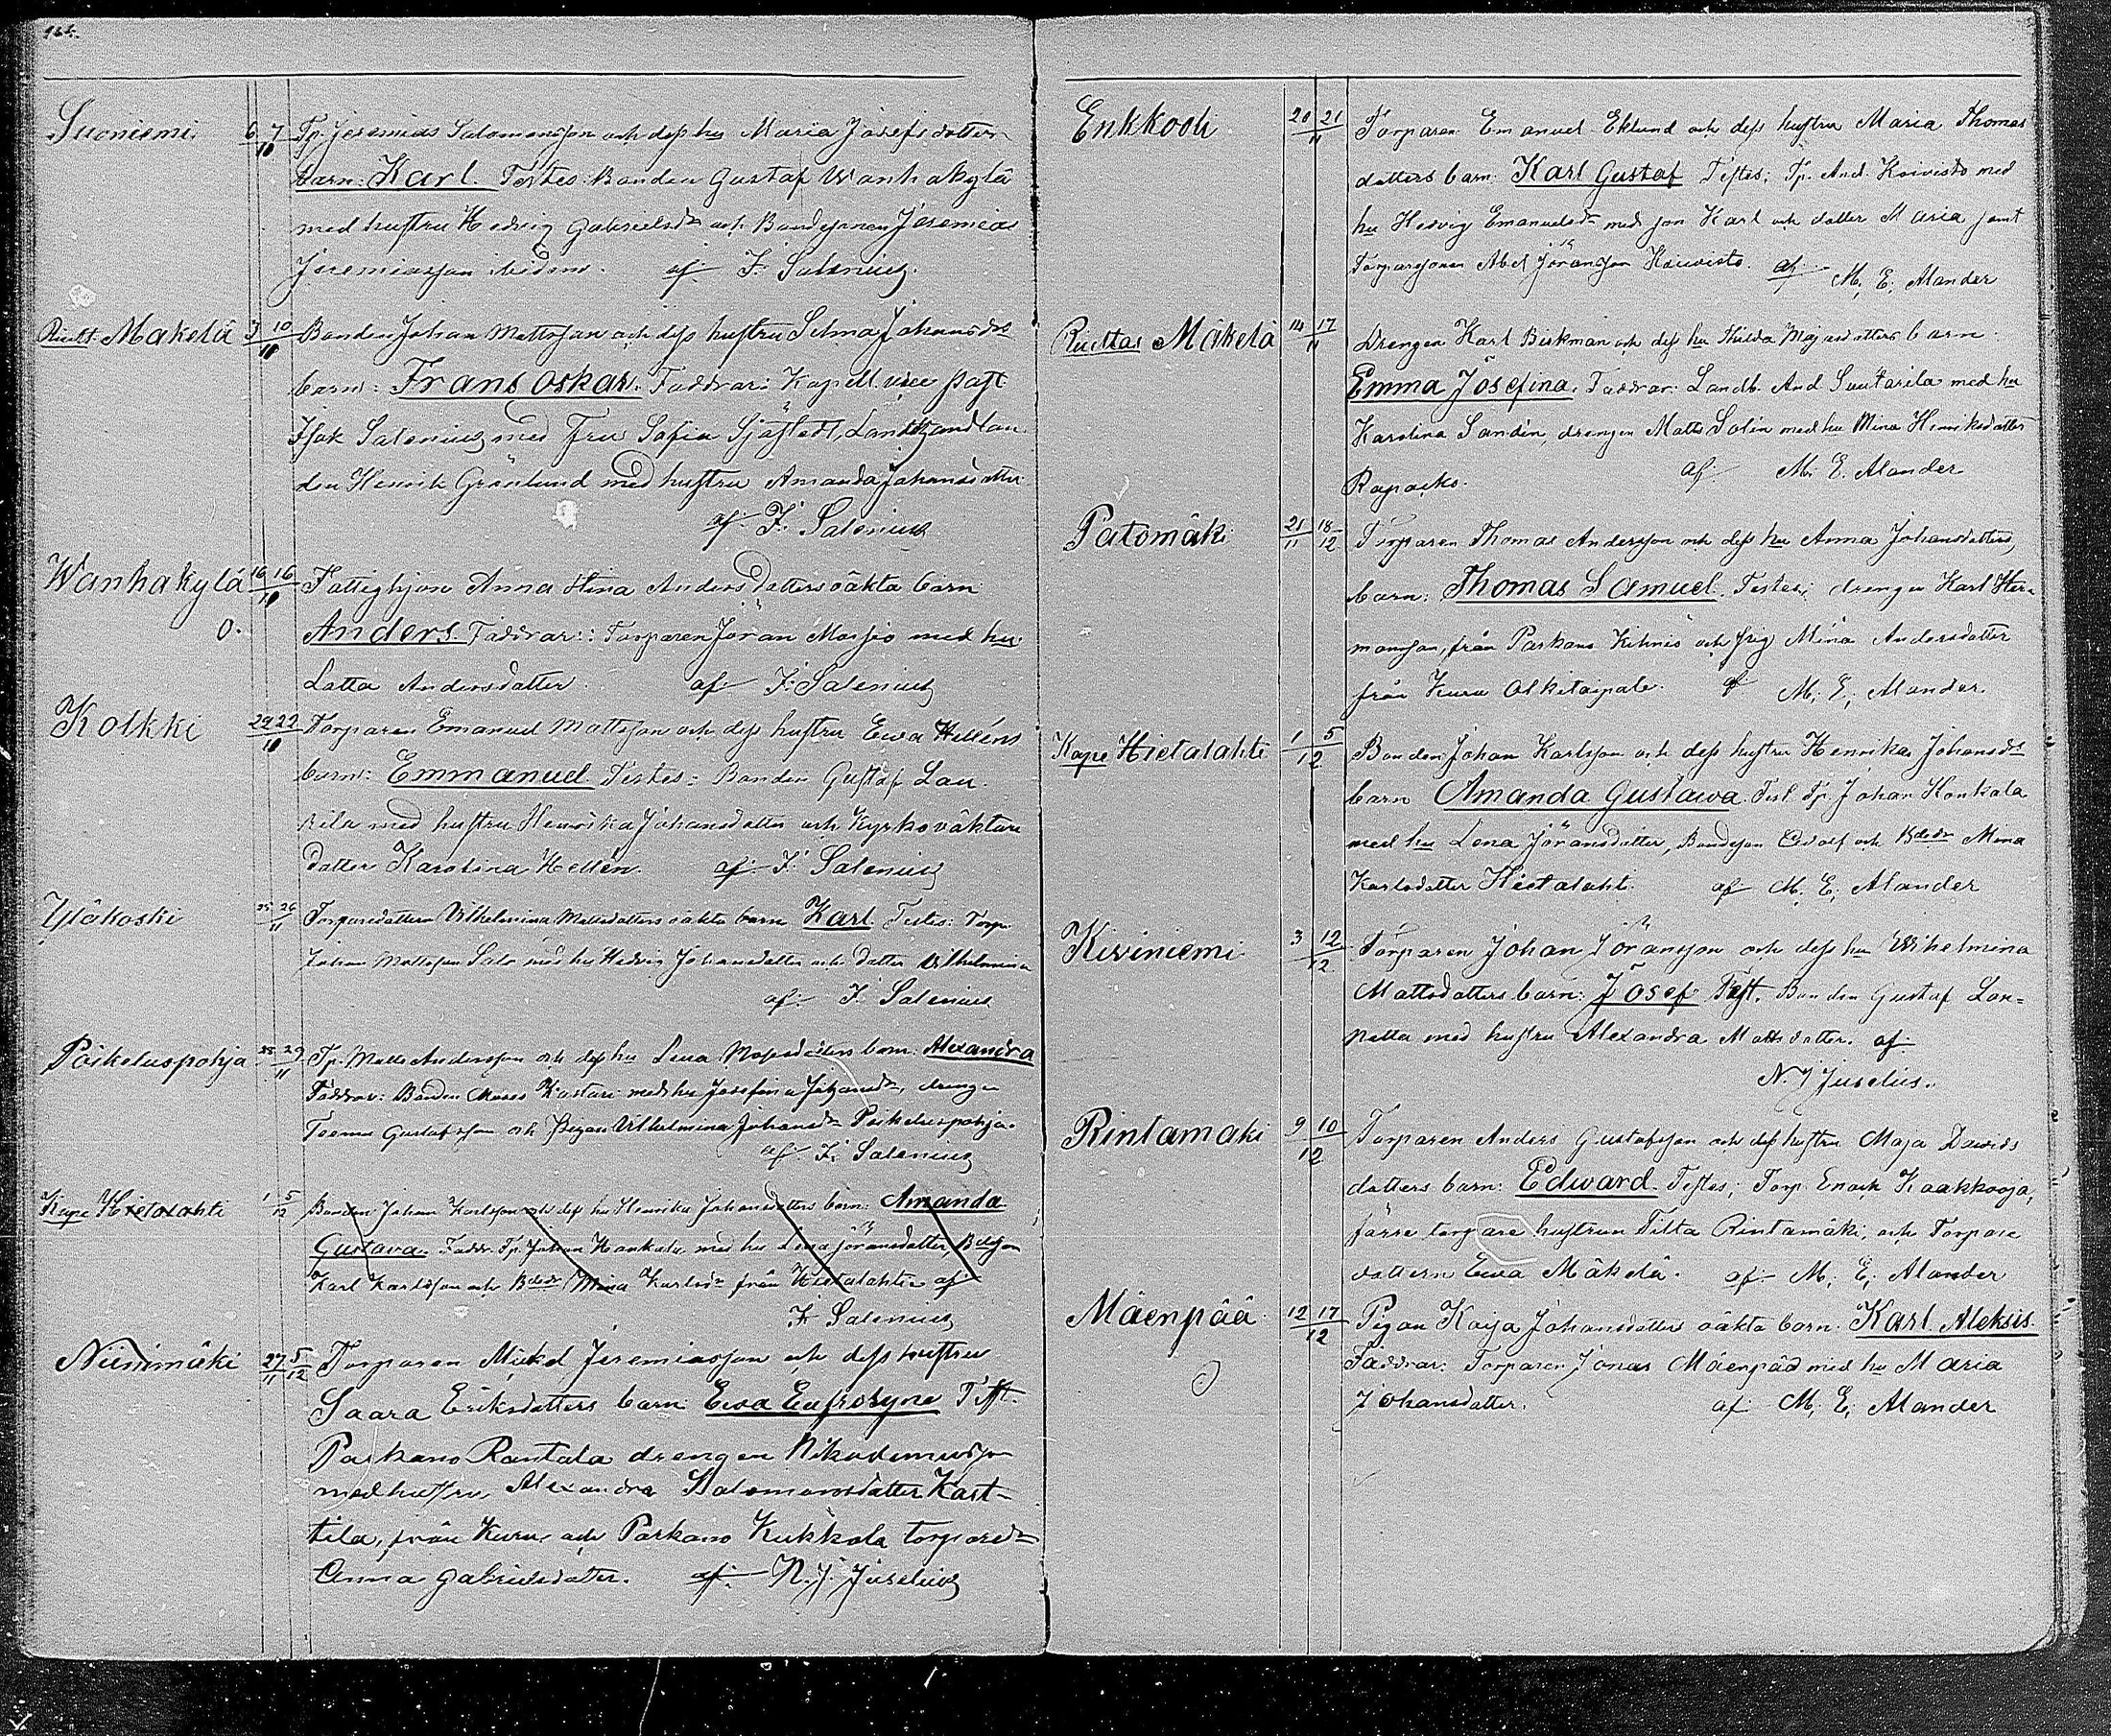 Suoniemi 6/10 7/10 Tp. Jeremias Salomonsson och dess hu Maria Josefsdotters
barn: Karl. Testes: Bonden Gustaf Wanhakylä
med hustru Hedvig Gabrielsdr och Bondesonen Jeremias
Jeremiasson ibidem. af F. Salenius.
Ruott. Makelä 3/10 10/10 Bonden Johan Mattsson och dess hustru Selma Johansdrs
barn: Frans Oskar. Faddrar: Kapell. vice past
Isak Salenius med Fru Sofia Sjöstedt, Landthandlan
den Henrik Grönlund med hustru Amanda Johansdotter
af F. Salenius
Wanhakylä 16/10 16/10 Fattighjon Anna Stina Andersdotters oäkta barn
o. Anders. Faddrar: Torparen Jöran Massio med hu
Lotta Andersdotter. af F. Salenius
Kolkki 22/10 22/10 Torparen Emanuel Mattsson och dess hustru Ewa Helléns
barn: Emmanuel Testes: Bonden Gustaf Lau-
rila med hustru Henrika Johansdotter och Kyrkoväktare
dotter Karolina Hellén. af F. Salenius
Yläkoski 25/11 26/11 Torparedottern Vilhelmina Mattsdotters oäkta barn Karl. Testes: Torp.
Johan Mattsson Salo med hu Hedvig Johansdotter och dotter Vilhelmina
af F. Salenius
Poikeluspohja 25/11 29/11 Tp. Matts Andersson och dess hu Lena Mosesdotters barn: Alexandra
Faddrar: Bonden Moses Kastari med hu Josefina Johansdr, drengen
Toemas Gustafsson och pigan Vilhelmina Johansdr Poikeluspohja.
af F. Salenius
Kape Hietalahti 1/12 5/12 Bonden Johan Karlsson och dess hu Henrika Johansdotters barn: Amanda
Gustava. Faddr. Tp. Johan Honkala med hu Lena Jöransdotter, Bdeson
Karl Karlsson och Bdedr Mina Karlsdr från Hietalahti af
F. Salenius
Niinimäki 27/11 5/12 Torparen Mickel Jeremiasson och dess hustru
Saara Eriksdotters barn: Ewa Eufrosyne Test.
Parkano Rantala drengen Nikodemusson
med hustru Alexandra Salomonsdotter Kart-
tila, från Kuru och Parkano Kukkola torparedr
Anna Gabrielsdotter. af N. J. Juselius
Enkkooh 20/11 21/11 Torparen Emanuel Eklund och dess hustru Maria Thomas
dotters barn: Karl Gustaf Testes; Tp. And. Koivisto med
hu Hedvig Emanuelsdr med son Karl och dotter Maria samt
Torparsonen Abel Jöransson Koivisto. af M. E. Alander
Ruottas Mäkelä 14/11 17/11 Drengen Karl Birkman och dess hu Hilda Majasdotters barn
Emma Josefina. Faddrar: Landb. And Suutarila med hu
Karolina Sandin, drengen Matts Solin med hu Mina Henriksdotter
Rapasko. af M. E. Alander
Patomäki 21/11 18/12 Torparen Thomas Andersson och dess hu Anna Johansdotters
barn: Thomas Samuel. Testes; drengen Karl Her-
mansson, från Parkano Kihniö och pig Mina Andersdotter
från Kuru Olkitaipale. af M. E. Alander.
Kape Hietalahti 1/12 5/12 Bonden Johan Karlsson och dess hustru Henrika Johansdrs
barn Amanda Gustawa. Test. Tp. Johan Honkala
med hu Lena Jöransdotter, Bondeson Adolf och Bdedr Mina
Karlsdotter Hietalahti. af M. E. Alander
Kiviniemi 3/12 12/12 Torparen Johan Jöransson och dess hu Wilhelmina
Mattsdotters barn: Josef Test. Bonden Gustaf Lon=
patta med hustru Alexandra Mattsdotter. af
N. J. Juselius.
Rintamaki 9/12 10/12 Torparen Anders Gustafsson och dess hustru Maja Davids
dotters barn: Edward. Testes; Torp. Enoch Kaakkooja,
förre torpare hustrun Tilta Rintamäki, och Torpare
dottern Ewa Mäkelä. af M. E. Alander
Mäenpää 12/12 17/12 Pigan Kajsa Johansdotters oäkta barn: Karl Aleksis.
Faddrar: Torparen Jonas Mäenpää med hu Maria
Johansdotter. af M. E. Alander